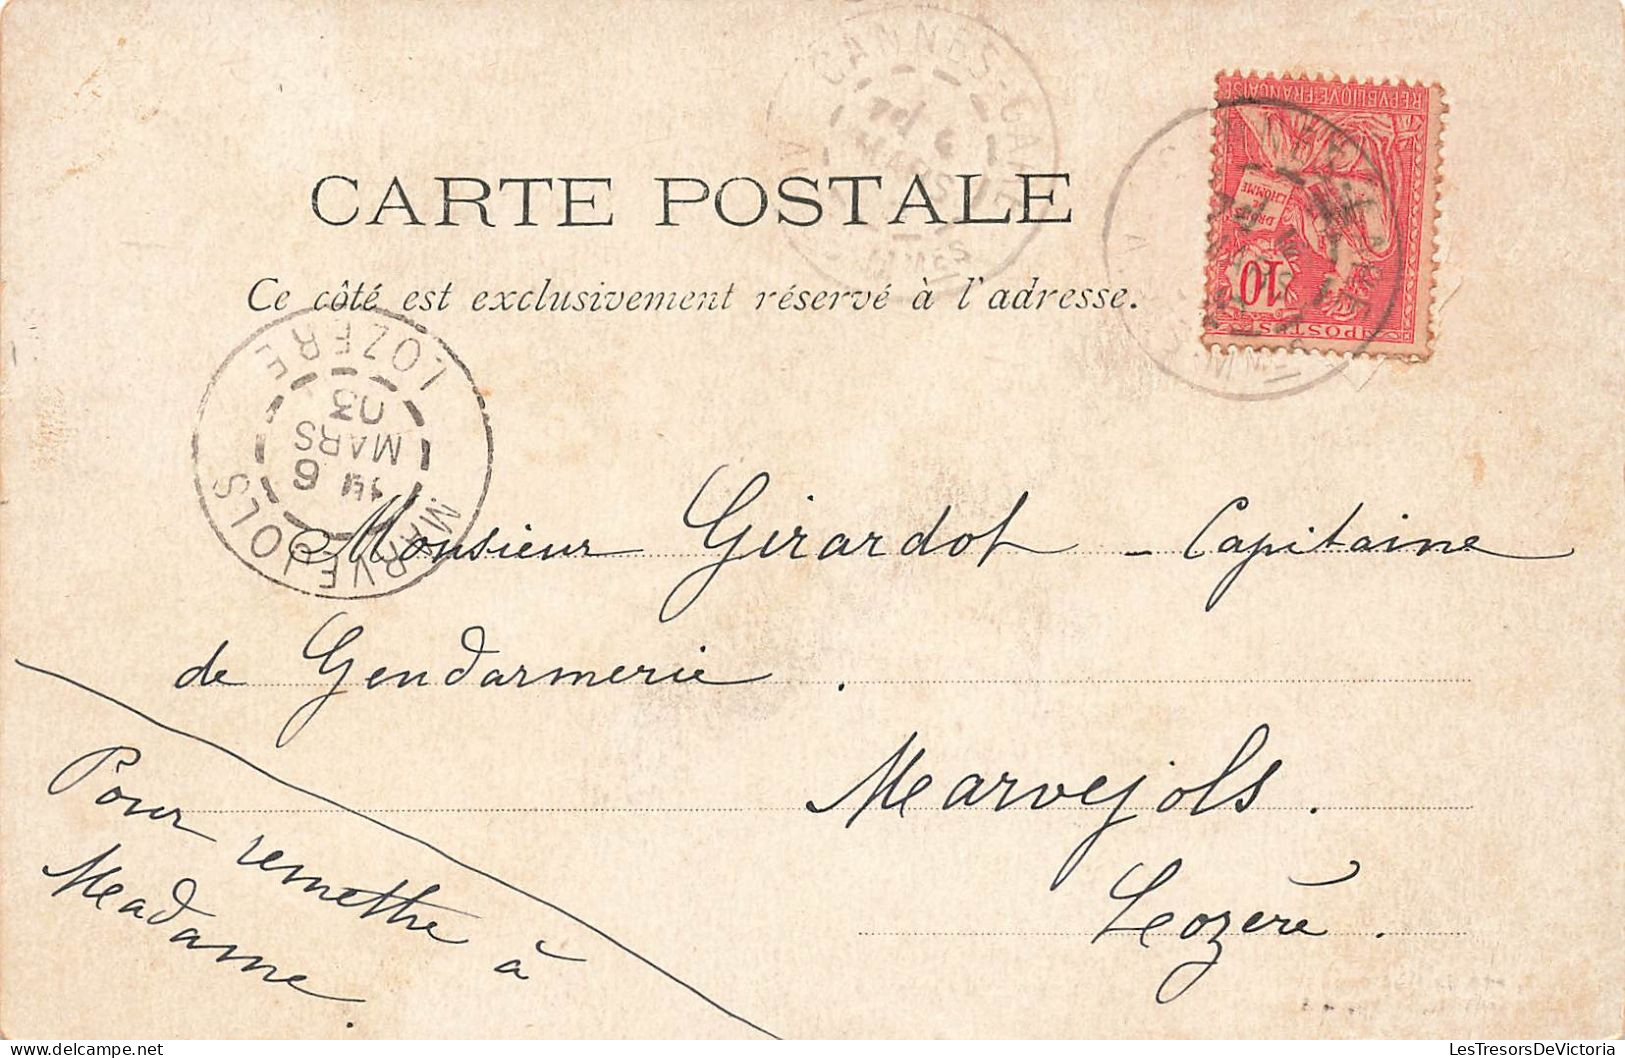 CARTE POSTALE
Ce côté est exclusivement réservé à l'adresse.
CANNES
REPVBLIQVE FRANÇAISE
DROITS DE L'HOMME
10
POSTES
LOZERE
6
MARS
03
MARVEJOLS
Monsieur Girardot - Capitaine
de Gendarmerie.
Marvejols.
Lozère.
Pour remettre à
Madame.
LesTresorsDeVictoria